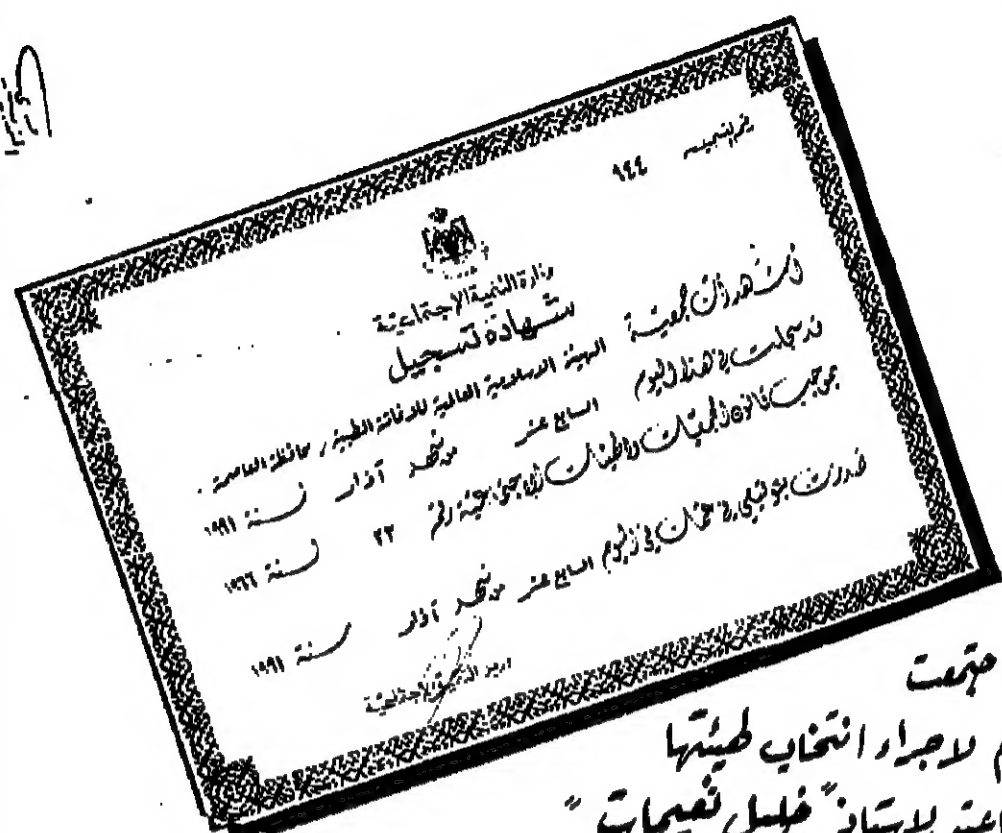 رقم التسجيل ٩٤٤
وزارة التنمية الاجتماعية
شهادة تسجيل
أشهد أن جمعية الهيئة الاسلامية العالمية للاغاثة الطبية / محافظة العاصمة .
قد سجلت في هذا اليوم السابع عشر من شهر آذار لسنة ١٩٩١
بموجب قانون الجمعيات والهيئات الاجتماعية رقم ٣٣ لسنة ١٩٦٦
صدرت بتوقيعي في عمان في اليوم السابع عشر من شهر آذار سنة ١٩٩١
وزير التنمية الاجتماعية
جتمعت
م لاجراء انتخاب لهيئتها
اعتة لاستاذ "خليل نعيمات"